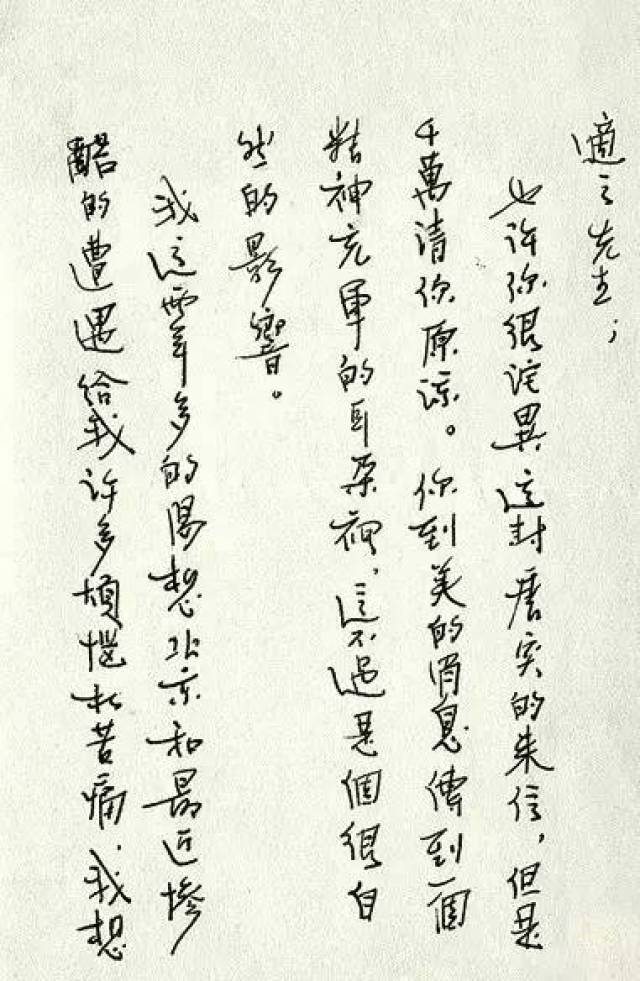 適之先生；
也许你很詫異這封唐突的来信，但是
千萬请你原諒。你到美的消息傳到一個
精神充軍的耳朵裡，這不過是個很自
然的影響。
我這両年多的渴想北京和最近惨
酷的遭遇给我许多烦惱和苦痛。我想